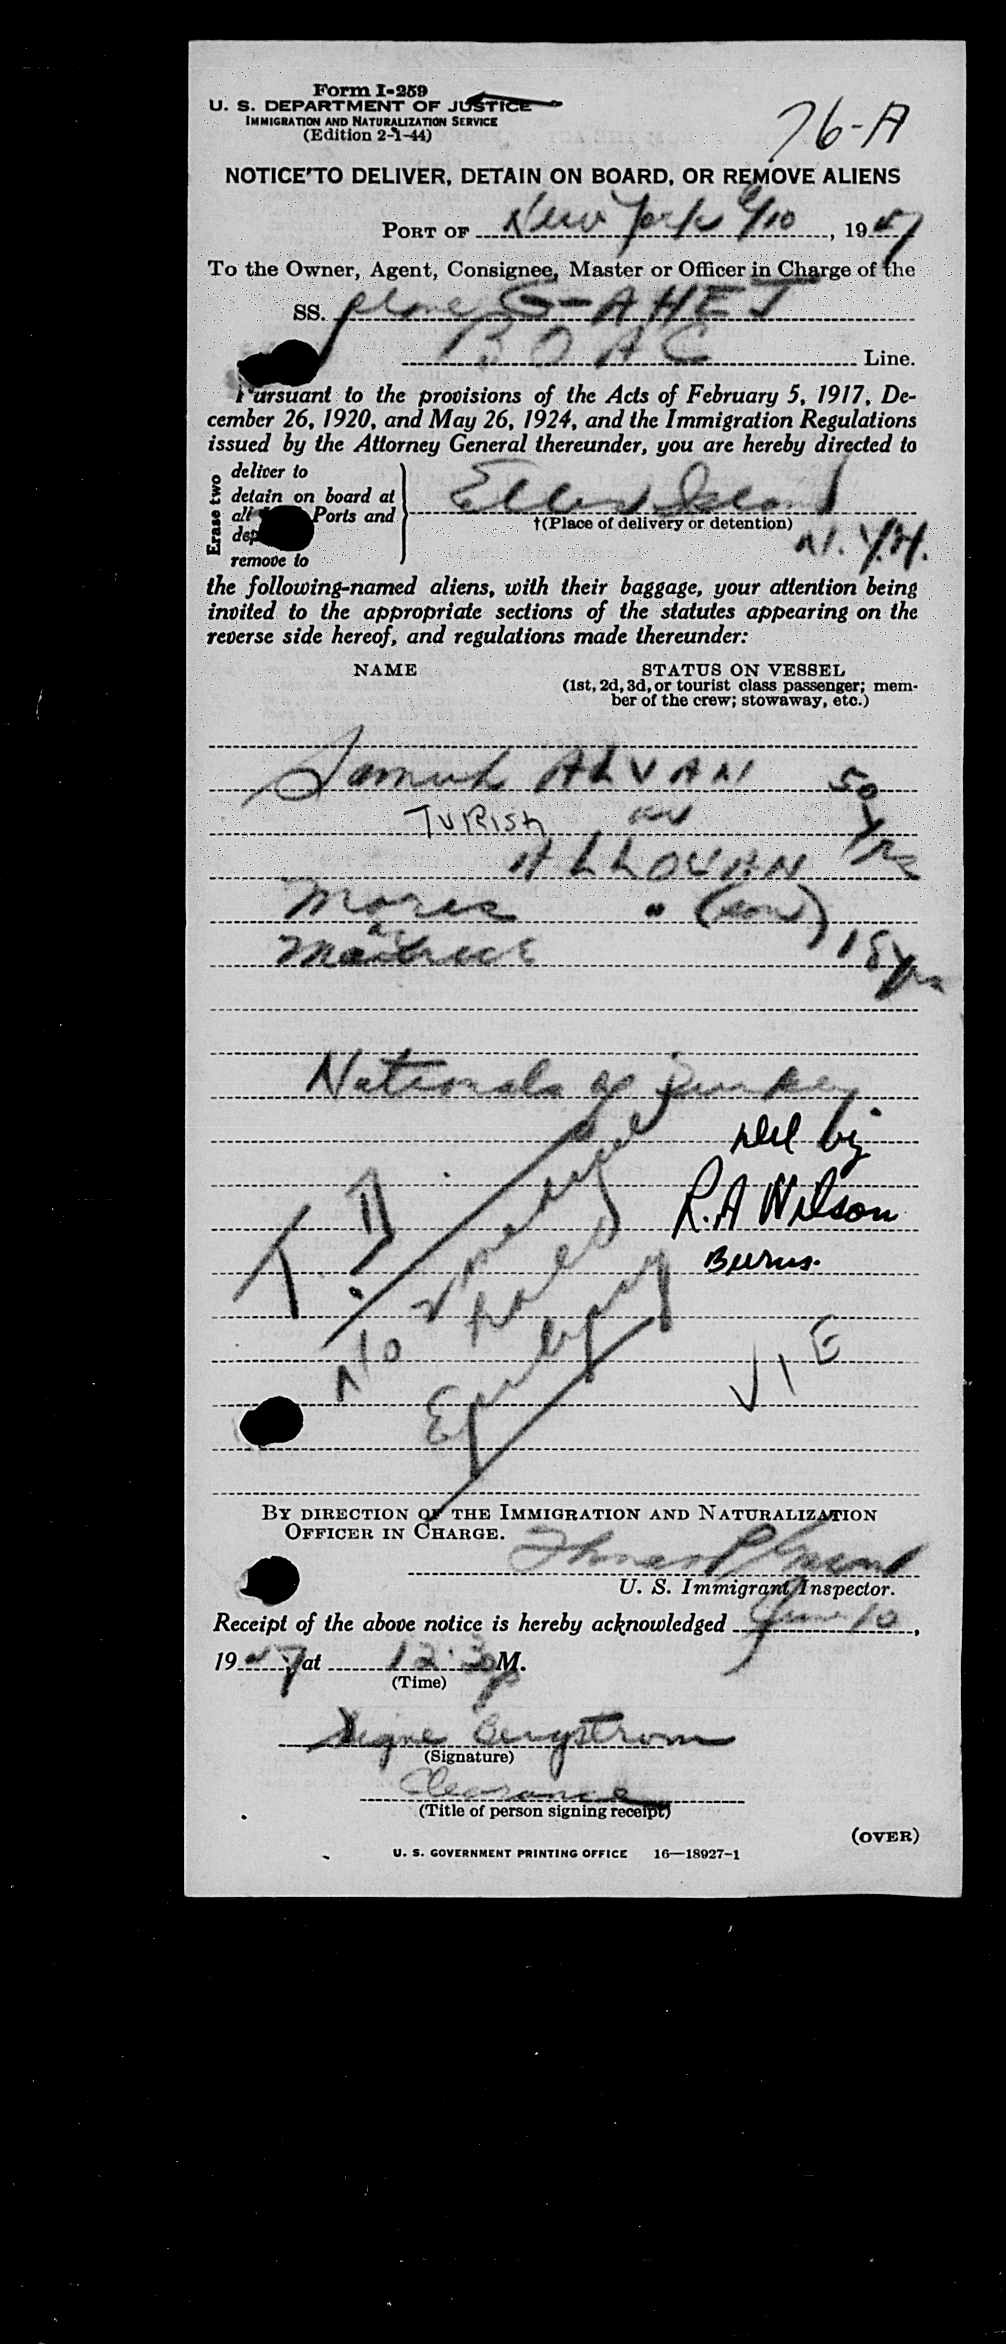 Form I-259
U. S. DEPARTMENT OF JUSTICE
IMMIGRATION AND NATURALIZATION SERVICE
(Edition 2-1-44)
76-A
NOTICE TO DELIVER, DETAIN ON BOARD, OR REMOVE ALIENS
PORT OF New York 6/10, 1947
To the Owner, Agent, Consignee, Master or Officer in Charge of the
SS. plane G-AHEJ
BOAC Line.
Pursuant to the provisions of the Acts of February 5, 1917, De-
cember 26, 1920, and May 26, 1924, and the Immigration Regulations
issued by the Attorney General thereunder, you are hereby directed to
Erase two
deliver to
detain on board at
all Ports and
remove to
Ellis Island
†(Place of delivery or detention)
N.Y.H.
the following-named aliens, with their baggage, your attention being
invited to the appropriate sections of the statutes appearing on the
reverse side hereof, and regulations made thereunder:
NAME
STATUS ON VESSEL
(1st, 2d, 3d, or tourist class passenger; mem-
ber of the crew; stowaway, etc.)
ALVAN 50 yrs
TURISH or
ALLOVAN
Mores " (son) 18 yrs
Nationals of Turkey
Del by
R.A Wilson
Burns.
T.D.
No
BY DIRECTION OF THE IMMIGRATION AND NATURALIZATION
OFFICER IN CHARGE.
Thomas P
U. S. Immigrant Inspector.
Receipt of the above notice is hereby acknowledged June 10,
1947 at 12:30 P M.
(Time)
Signe Bergstrom
(Signature)
Clearance
(Title of person signing receipt)
(OVER)
U. S. GOVERNMENT PRINTING OFFICE 16—18927-1